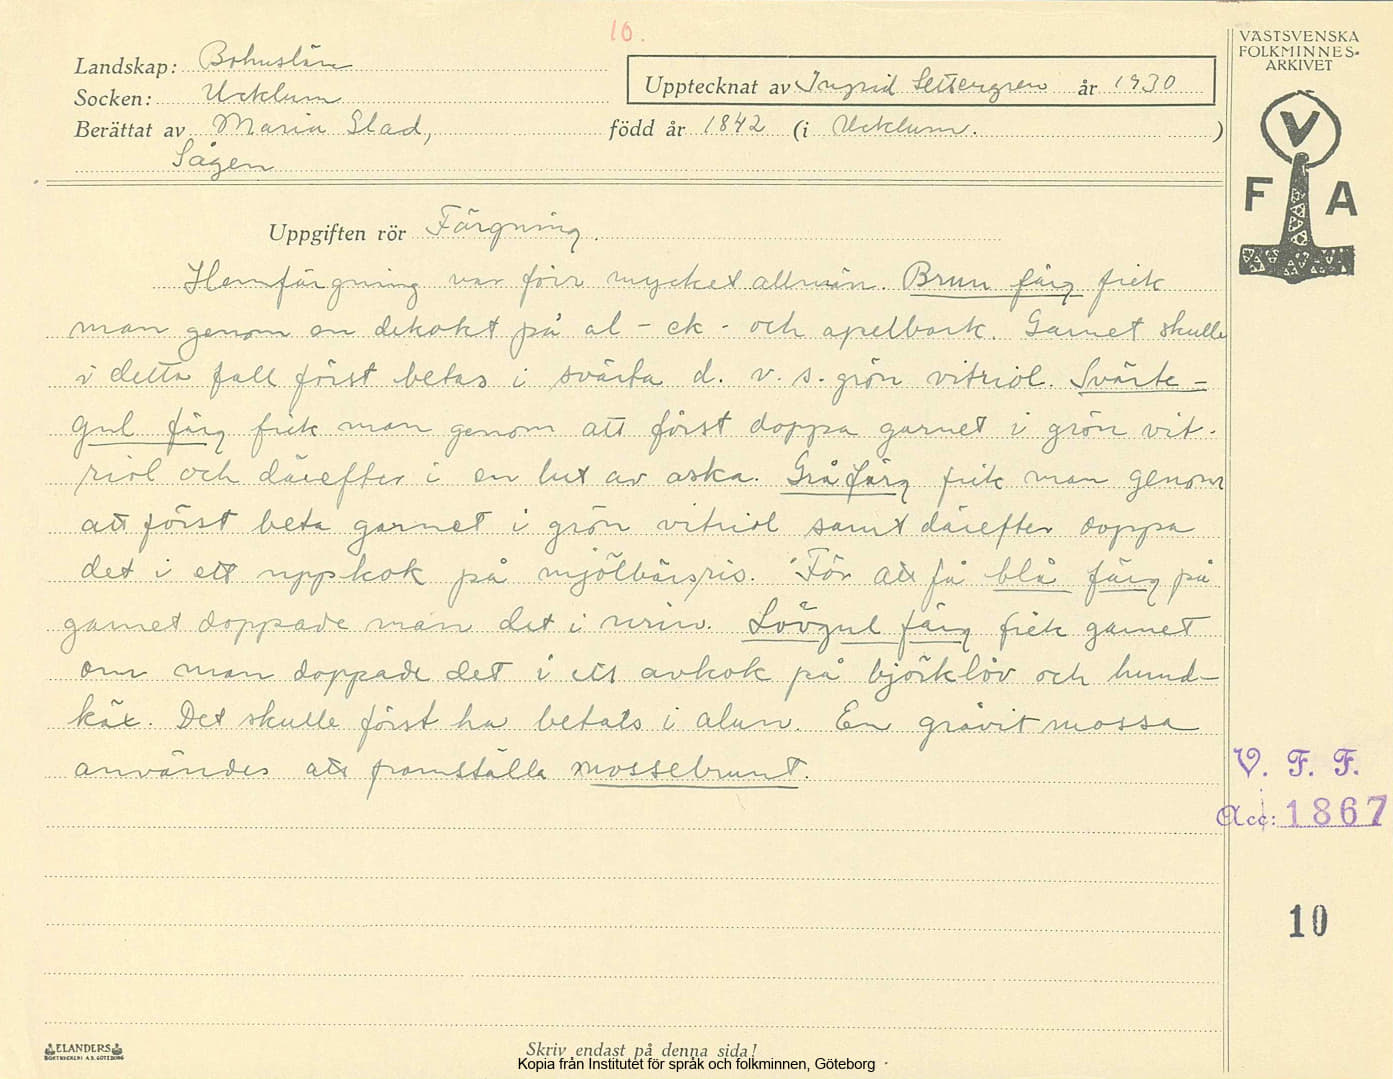 10.
VÄSTSVENSKA
FOLKMINNES-
ARKIVET
Landskap: Bohuslän
Upptecknat av Ingrid Settergren år 1930
Socken: Ucklum
Berättat av Maria Glad, född år 1842 (i Ucklum. )
Sågen
V
F A
Uppgiften rör Färgning.
Hemfärgning var förr mycket allmän. Brun färg fick
man genom en dekokt på al- ek- och apelbark. Garnet skulle
i detta fall först betas i svärta d. v. s. grön vitriol. Svarte-
gul färg fick man genom att först doppa garnet i grön vit-
riol och därefter i en lut av aska. Grå färg fick man genom
att först beta garnet i grön vitriol samt därefter doppa
det i ett uppkok på mjölbärsris. För att få blå färg på
garnet doppade man det i urin. Lövgul färg fick garnet
om man doppade det i ett avkok på björklöv och hund-
käx. Det skulle först ha betats i alun. En gråvit mossa
användes att framställa mossebrunt.
V. F. F.
Acc: 1867
10
ELANDERS
BOKTRYCKERI A.B. GÖTEBORG
Skriv endast på denna sida!
Kopia från Institutet för språk och folkminnen, Göteborg